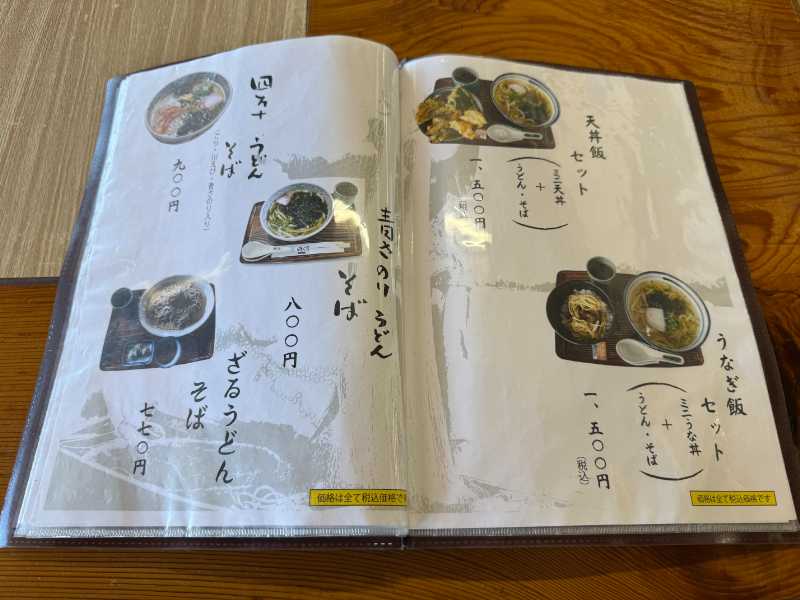 四万十 うどん
そば
(ごり・川エビ・青さのり入り)
九〇〇円
青さのり うどん
そば
八〇〇円
ざるうどん
そば
七七〇円
価格は全て税込価格です
天丼飯
セット
(ミニ天丼
+
うどん・そば)
一、五〇〇円
(税込)
うなぎ飯
セット
(ミニうな丼
+
うどん・そば)
一、五〇〇円
(税込)
価格は全て税込価格です